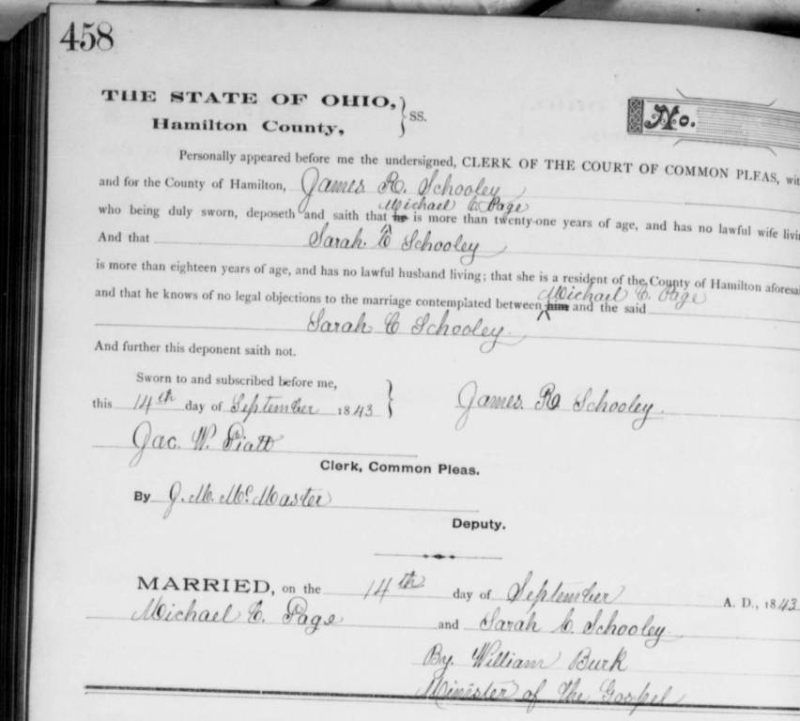 458
THE STATE OF OHIO,
Hamilton County, } SS.
No.
Personally appeared before me the undersigned, CLERK OF THE COURT OF COMMON PLEAS, wit
and for the County of Hamilton, James R. Schooley
Michael C Page
who being duly sworn, deposeth and saith that he is more than twenty-one years of age, and has no lawful wife livi
And that Sarah. C Schooley
is more than eighteen years of age, and has no lawful husband living; that she is a resident of the County of Hamilton aforesai
Michael C. Page
and that he knows of no legal objections to the marriage contemplated between him and the said
Sarah C Schooley
And further this deponent saith not.
Sworn to and subscribed before me,
this 14th day of September 1843 } James. R Schooley.
Jac. W. Piatt
Clerk, Common Pleas.
By J. M. McMaster
Deputy.
MARRIED, on the 14th day of September A. D., 1843
Michael C. Page and Sarah C. Schooley
By. William Burk
Minister of the Gospel